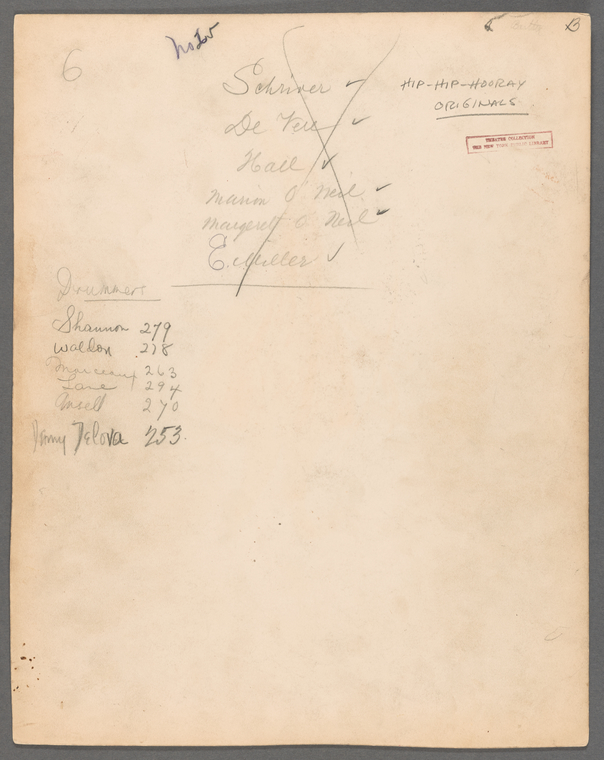 6
B
Schriver ✓
HIP-HIP-HOORAY
ORIGINALS
De Vere ✓
THEATRE COLLECTION
THE NEW YORK PUBLIC LIBRARY
Hall ✓
Marion O Neil ✓
Margerett O Neil ✓
E. Miller ✓
Drummers
Shannon 279
Waldon 278
Marceaux 263
Lane 294
Ansell 270
Delova 253.